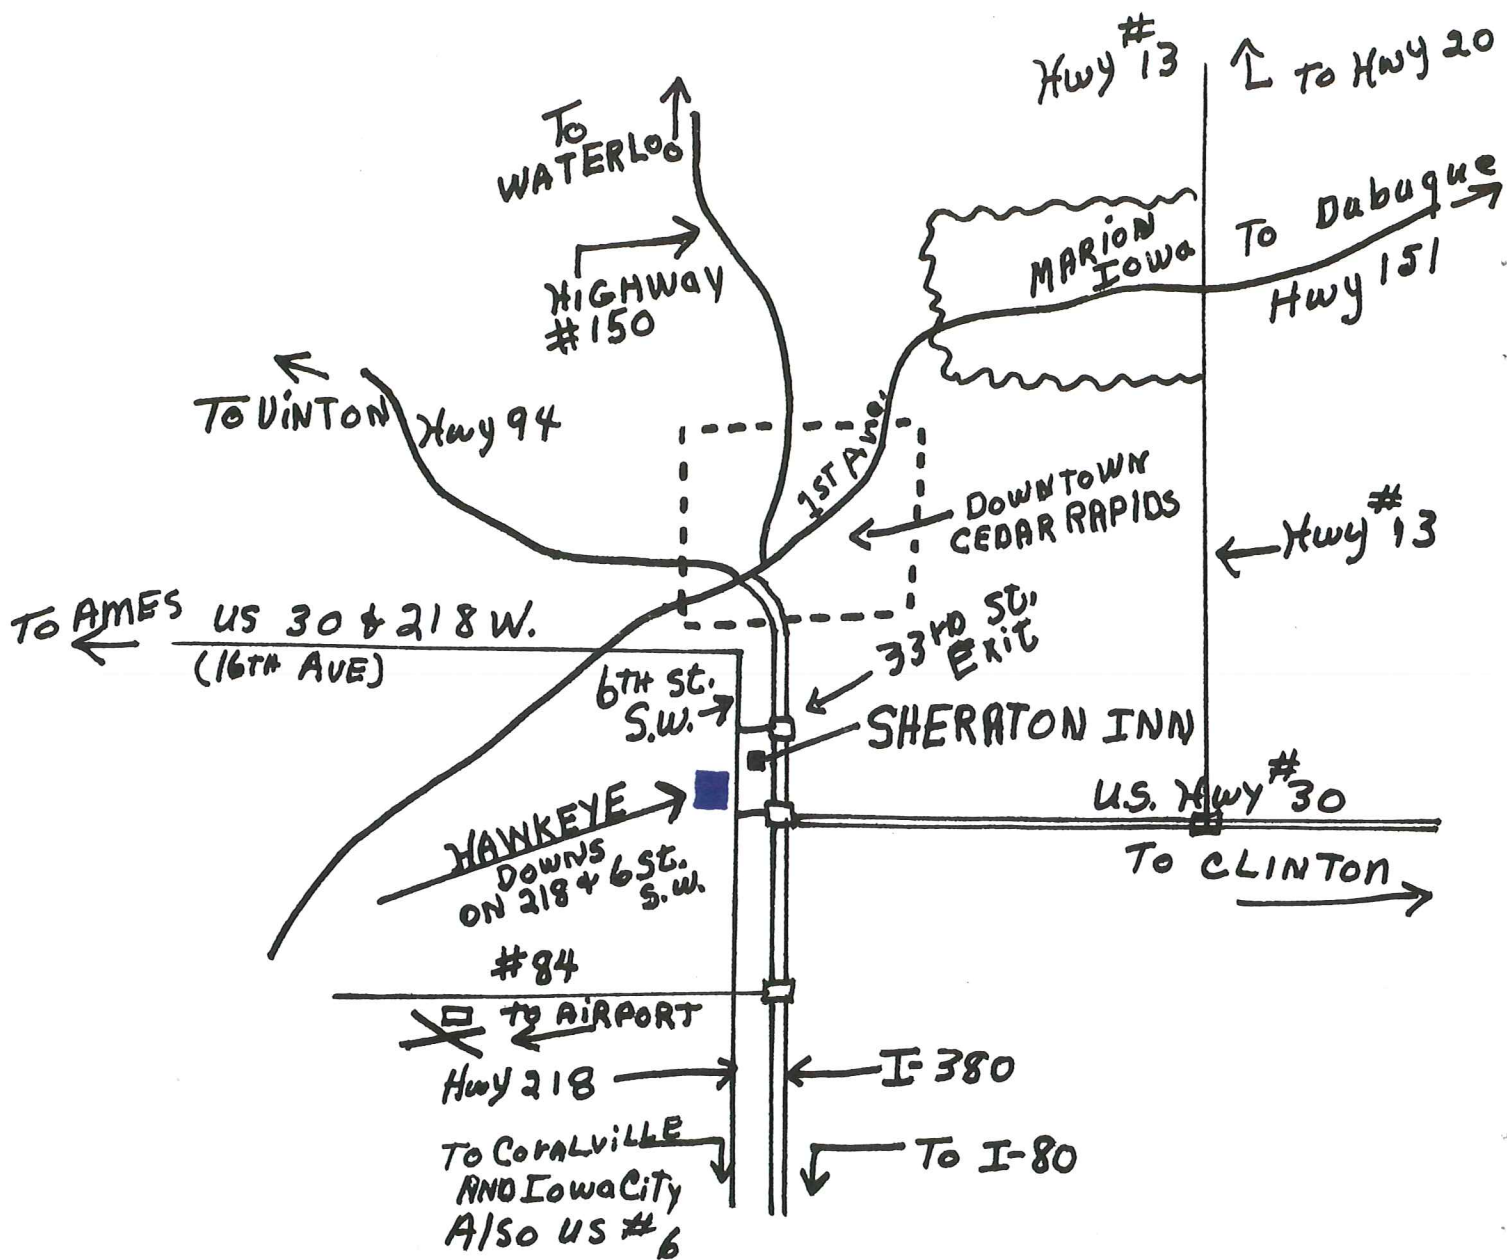 Hwy #13
To Hwy 20
To
WATERLOO
HIGHWAY
#150
MARION
IOWA
To Dubuque
Hwy 151
To VINTON
Hwy 94
1ST Ave.
DOWNTOWN
CEDAR RAPIDS
Hwy #13
To AMES
US 30 & 218 W.
(16TH AVE)
6TH St.
S.W.
33RD St.
Exit
SHERATON INN
HAWKEYE
DOWNS
ON 218 & 6 St.
S.W.
U.S. Hwy #30
To CLINTON
#84
to AIRPORT
Hwy 218
I-380
To CORALVILLE
AND Iowa City
Also US #6
To I-80